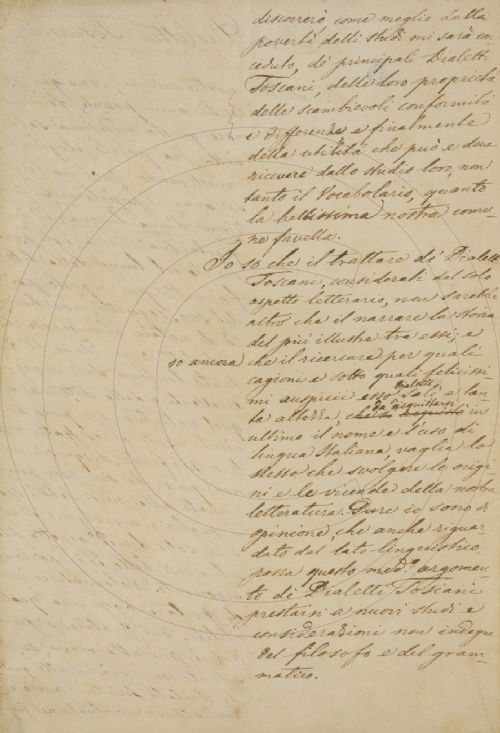 discorrerò, come meglio dalla
povertà delli studi mi sarà con
ceduto, de' principali Dialetti
Toscani, delle loro proprietà
delle scambievoli conformità
e differenze e finalmente
della utilità che può e deve
ricevere dallo studio loro, non
tanto il Vocabolario, quanto
la bellissima nostra comu-
ne favella.
Io so che il trattare de' Dialetti
Toscani, considerati dal solo
aspetto letterario, non sarebbe
altro che il narrare la storia
del più illustre tra essi; e
so ancora che il ricercare per quali
cagioni e sotto quali felicissi
mi auspicii esso Dialetto salì a tan-
ta altezza, da acquistarsi in
ultimo il nome e l'uso di
lingua Italiana, vaglia lo
stesso che svolgere le origi
ni e le vicende della nostra
letteratura. Pure io sono di
opinione, che anche riguar-
dato dal lato linguistico,
possa questo med.º argomen
to di Dialetti Toscani
prestarsi a nuovi studi e
considerazioni non indegne
del filosofo e del gram-
matico.